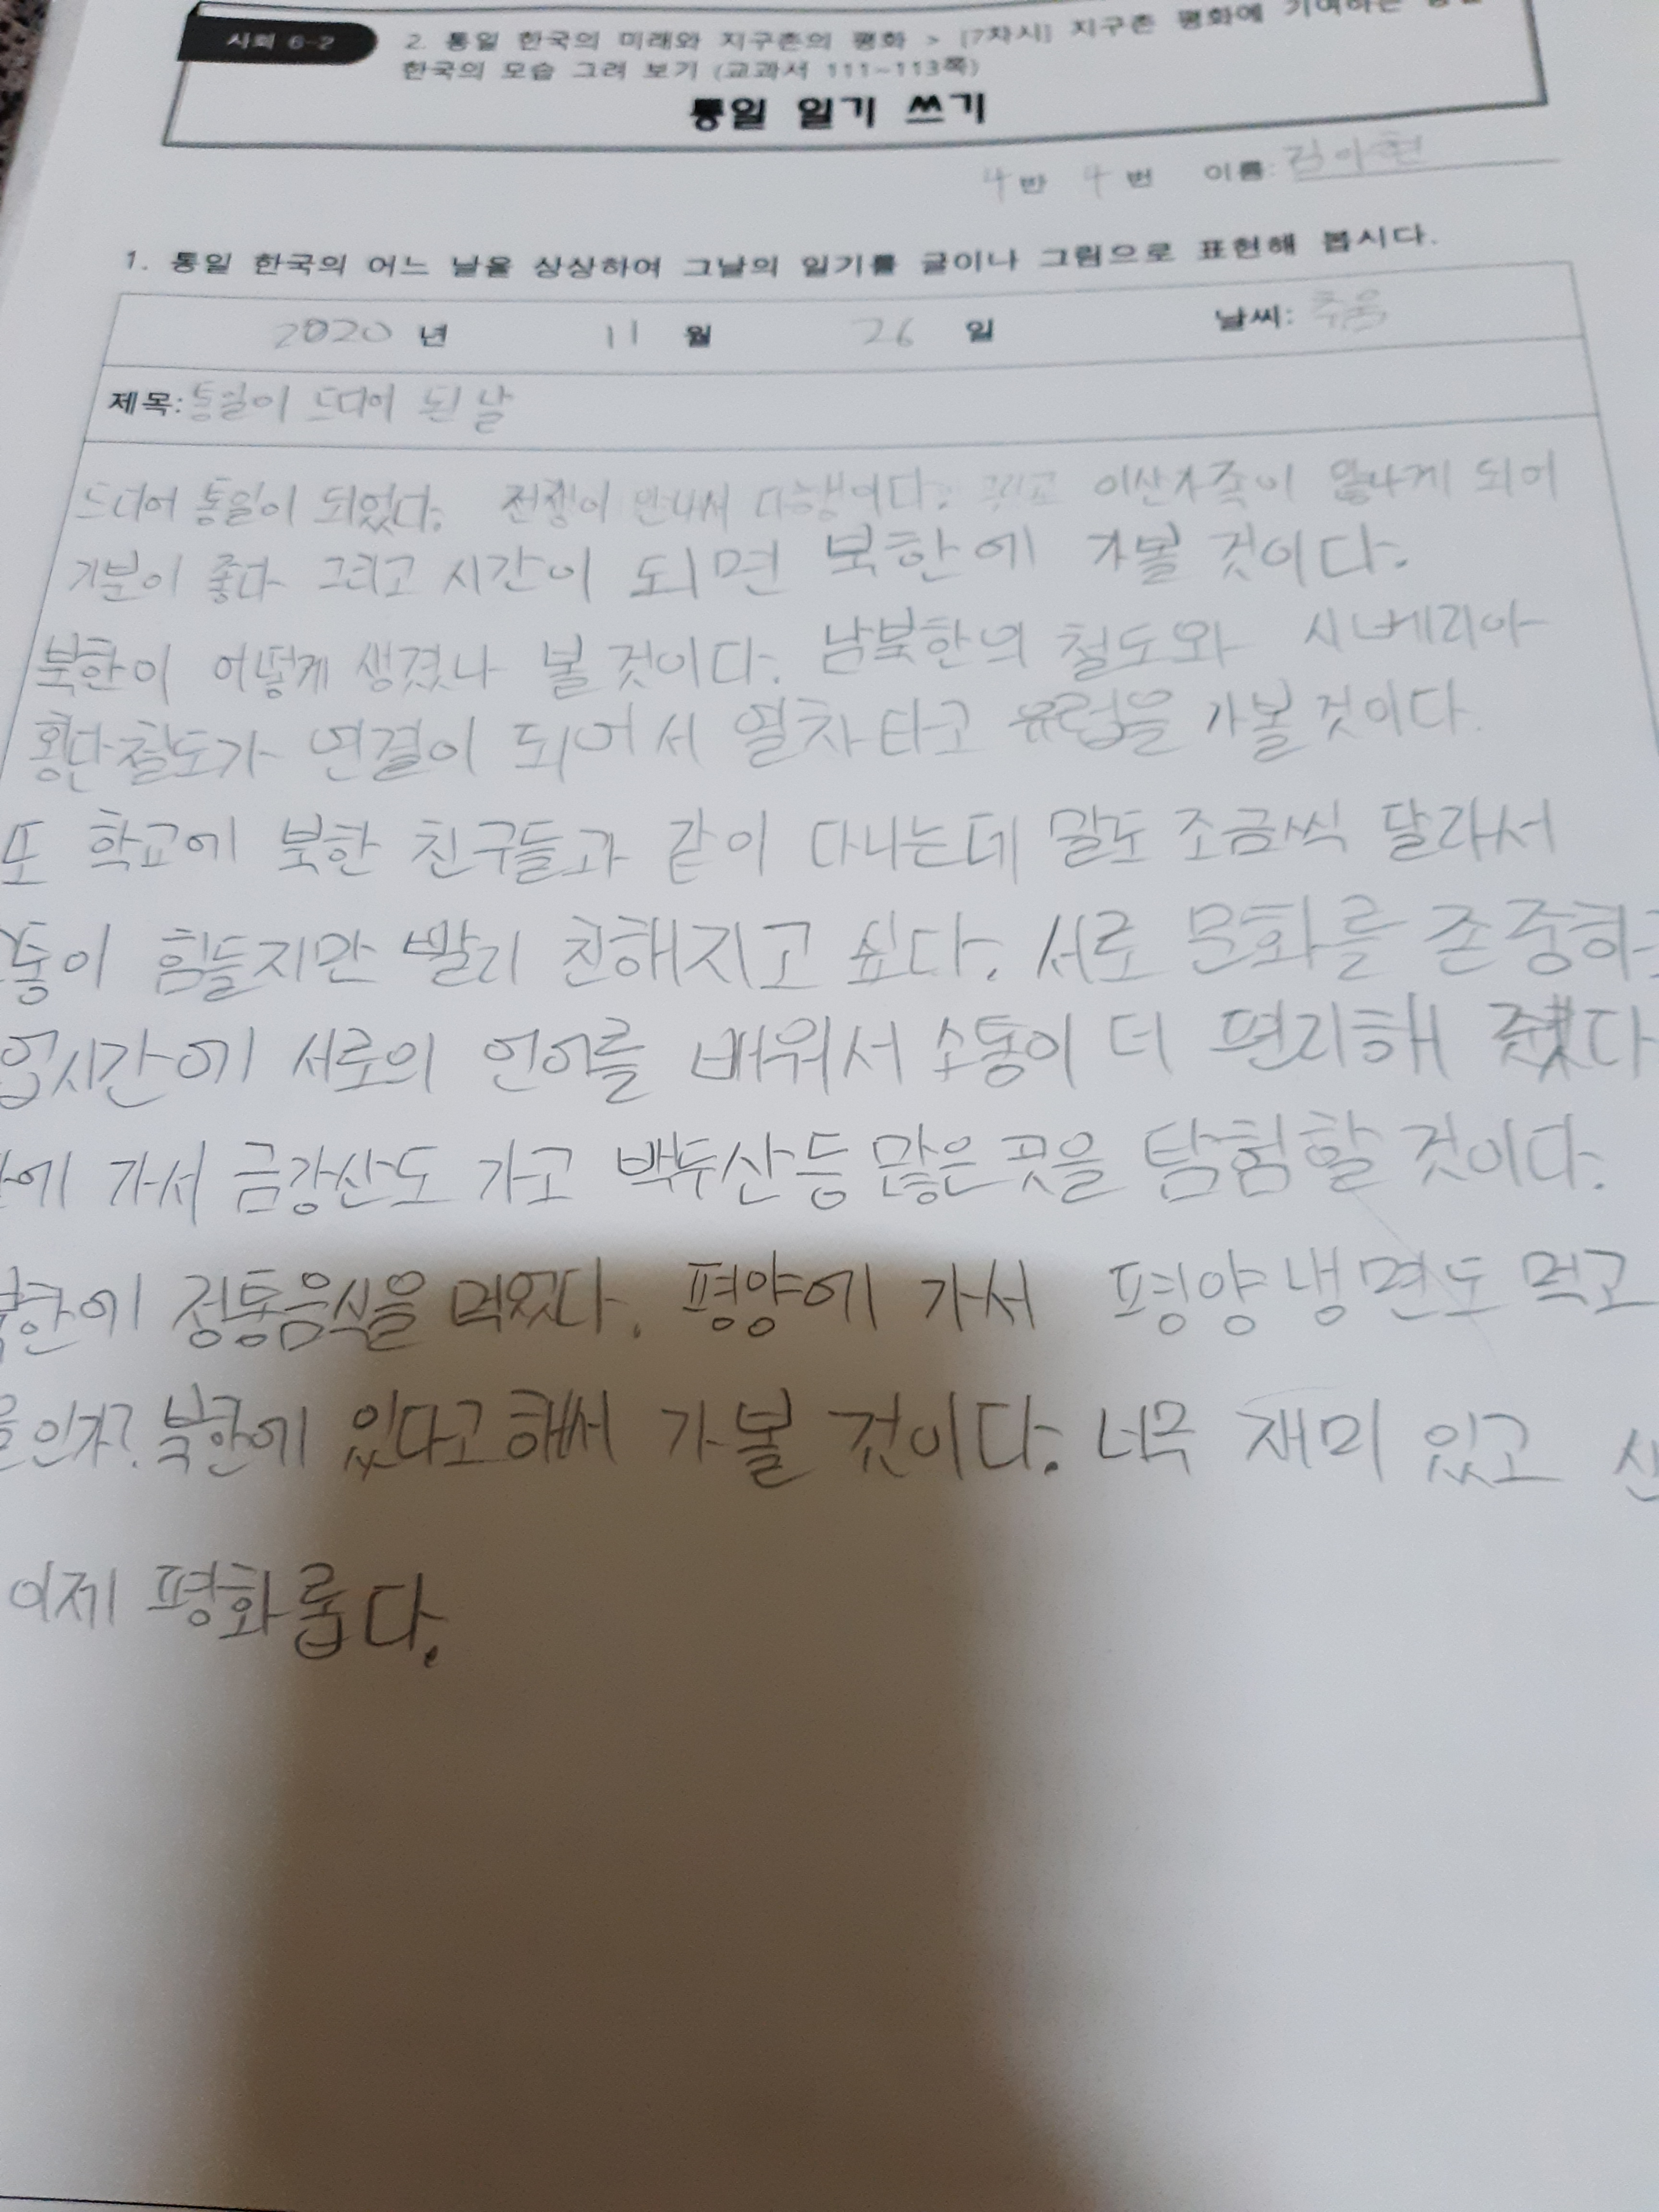 사회 6-2
2. 통일 한국의 미래와 지구촌의 평화 > [7차시] 지구촌 평화에 기여하는
한국의 모습 그려 보기 (교과서 111~113쪽)
통일 일기 쓰기
4 반 4 번 이름: 김아현
1. 통일 한국의 어느 날을 상상하여 그날의 일기를 글이나 그림으로 표현해 봅시다.
2020 년 11 월 26 일 날씨: 추움
제목: 통일이 드디어 된 날
드디어 통일이 되었다. 전쟁이 안나서 다행이다. 그리고 이산가족이 만나게 되어
기분이 좋다 그리고 시간이 되면 북한에 가볼 것이다.
북한이 어떻게 생겼나 볼 것이다. 남북한의 철도와 시베리아
횡단철도가 연결이 되어서 열차타고 유럽을 가볼것이다.
또 학교에 북한 친구들과 같이 다니는데 말도 조금씩 달라서
통이 힘들지만 빨리 친해지고 싶다. 서로 문화를 존중하
업시간에 서로의 언어를 배워서 소통이 더 편리해 졌다
에 가서 금강산도 가고 백두산등 많은 곳을 탐험할 것이다.
한에 정통음식을 먹었다. 평양에 가서 평양냉면도 먹고
인가? 북한에 있다고해서 가볼 것이다. 너무 재미 있고
이제 평화롭다.